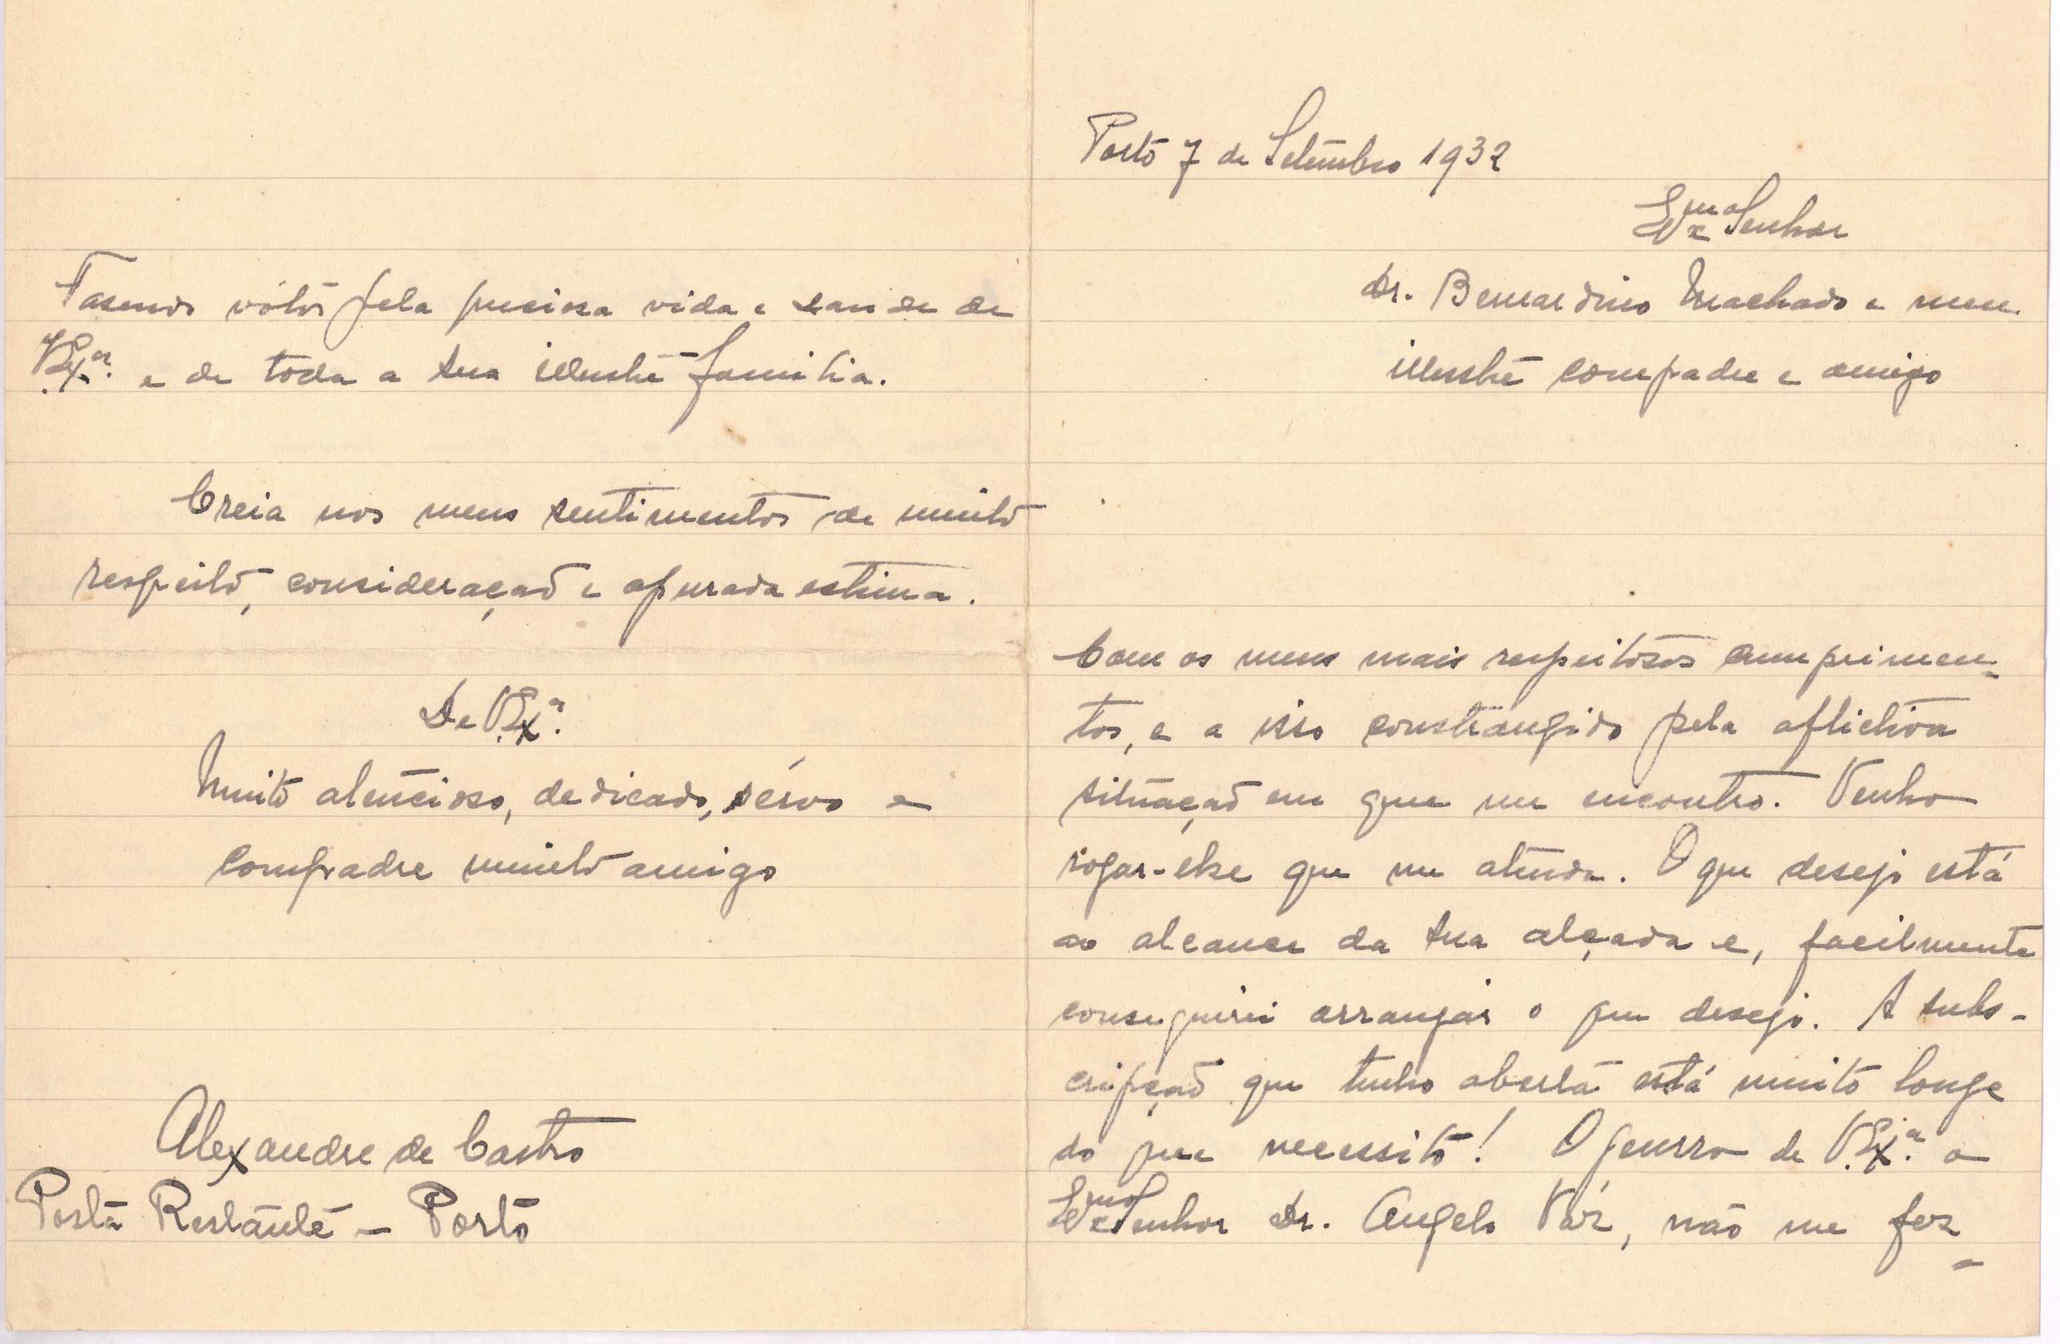 Porto 7 de Setembro 1932
Exmo Senhor
Dr. Bernardino Machado e meu
illustre compadre e amigo
Com os meus mais respeitosos cumprimen-
tos, e a isso constrangido pela aflictiva
situação em que me encontro. Venho
rogar-lhe que me atenda. O que desejo está
ao alcance da sua alçada e, facilmente
conseguirei arranjar o que desejo. A subs-
cripção que tenho aberta está muito longe
do que necessito! O genrro de V. Exª. o
Exmo Senhor Dr. Angelo Váz, não me fez
Fasemos vótos pela preciosa vida e saude de
V. Exª. e de toda a sua illustre familia.
Creia nos meus sentimentos de muito
respeito, consideração e apurada estima.
De V. Exª.
Muito atencioso, dedicado, sérvo e
compadre muito amigo
Alexandre de Castro
Posta Restante - Porto